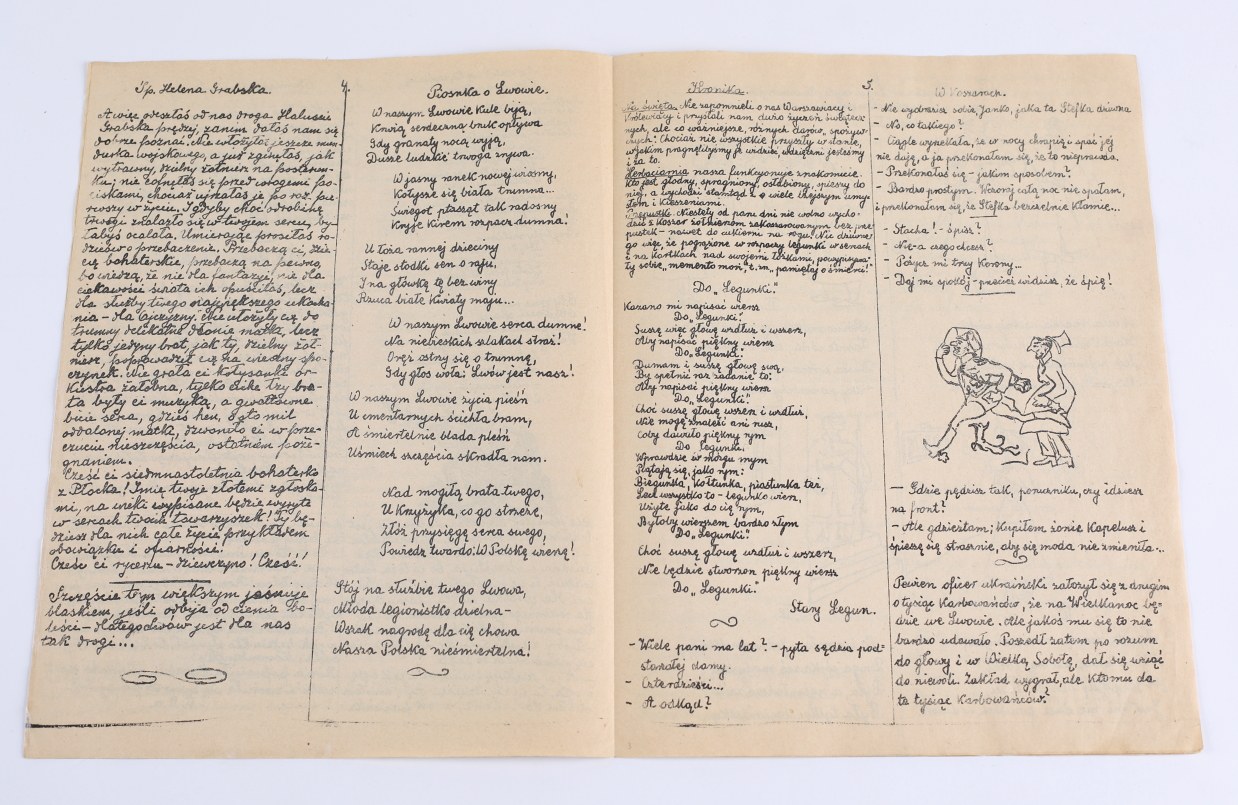 Ś/p. Helena Grabska.
4.
A więc odeszłaś od nas droga Halusiu
Grabska prędzej, zanim dałaś nam się
dobrze poznać. Nie włożyłaś jeszcze mun-
durka wojskowego, a już zginęłaś, jak
wytrawny, dzielny żołnierz na posterun-
ku; nie cofnęłaś się przed wrogiemi po-
ciskami, chociaż ujrzałaś je po raz pier-
wszy w życiu. I gdyby choć odrobinę
trwogi znalazło się w twojem sercu, by-
łabyś ocalała. Umierając prosiłaś ro-
dziców o przebaczenie. Przebaczą ci, dzie-
cię bohaterskie, przebaczą na pewno,
bo wiedzą, że nie dla fantazyi, nie dla
ciekawości świata ich opuściłaś, lecz
dla służby twego największego ukocha-
nia - dla Ojczyzny. Nie ułożyły cię do
trumny delikatne dłonie matki, lecz
tylko jedyny brat, jak ty, dzielny żoł-
nierz, poprowadził cię na wieczny spo-
czynek. Nie grała ci kołysanki or-
kiestra żałobna, tylko ciche łzy bra-
ta były ci muzyką, a gwałtowne
bicie serca, gdzieś hen, o sto mil
oddalonej matki, dzwoniło ci w prze-
czuciu nieszczęścia, ostatniem poże-
gnaniem.
Cześć ci siedmnastoletnia bohaterko
z Płocka! Imię twoje złotemi zgłoska-
mi, na wieki wypisane będzie wyryte
w sercach twoich towarzyszek! Ty bę-
dziesz dla nich całe życie przykładem
obowiązku i ofiarności!
Cześć ci rycerzu - dziewczyno! Cześć!
Szczęście tem większym jaśnieje
blaskiem, jeśli odbija od cienia bo-
leści - dlatego Lwów jest dla nas
tak drogi...
Piosnka o Lwowie.
W naszym Lwowie kule biją,
Krwią serdeczną bruk opływa
Gdy granaty nocą wyją,
Dusze ludzkie trwoga zrywa.
W jasny ranek nowej wiosny,
Kołysze się biała trumna...
Świegot ptasząt tak radosny
Kryje kirem rozpacz dumna!
U łoża rannej dzieciny
Staje słodki sen o raju,
I na główkę tę bez winy
Rzuca białe kwiaty maju...
W naszym Lwowie serca dumne!
Na niebieskich szlakach straż!
Oręż ostry się o trumnę,
Gdy głos woła: Lwów jest nasz!
W naszym Lwowie życia pieśń
U cmentarnych ścichła bram,
A śmiertelnie blada pleśń
Uśmiech szczęścia skradła nam.
Nad mogiłą brata twego,
U krzyżyka, co go strzeże,
Złóż przysięgę serca swego,
Powiedz twardo: W Polskę wierzę!
Stój na służbie twego Lwowa,
Młoda legionistko dzielna -
Wszak nagrodę dla cię chowa
Nasza Polska nieśmiertelna!
5.
Kronika.
Na święta. Nie zapomnieli o nas Warszawiacy i
Królewiacy i przysłali nam dużo życzeń świątecz-
nych, ale co ważniejsze, różnych darów, spożyw-
czych. Chociaż nie wszystkie przyszły w stanie,
w jakim pragnęlibyśmy je widzieć, wdzięczni jesteśmy
i za to.
Herbaciarnia nasza funkcyonuje znakomicie.
Kto jest głodny, spragniony, osłabiony, spieszy do
niej, a wychodzi stamtąd z o wiele lżejszym umy-
słem i kieszeniami.
Przepustki. Niestety od paru dni nie wolno wycho-
dzić z koszar żołnierzom zakoszarowanym bez prze-
pustek - nawet do cukierni na rogu. Nic dziwne-
go więc, że pogrążone w rozpaczy legunki w sieniach
i na kartkach nad swojemi łóżkami, powypisywa-
ły sobie „memento mori", t. zn. „pamiętaj o śmierci!"
Do „Legunki".
Kazano mi napisać wiersz
Do „Legunki".
Suszę więc głowę wzdłuż i wszerz,
Aby napisać piękny wiersz
Do „Legunki".
Dumam i suszę głowę swą,
By spełnić raz zadanie to:
Aby napisać piękny wiersz
Do „Legunki".
Choć suszę głowę wszerz i wzdłuż,
Nie mogę znaleźć ani rusz,
Coby dawało piękny rym
Do „Legunki".
Wprawdzie w mózgu mym
Plątają się, jako rym:
Biegunka, kołtunka, piastunka też,
Lecz wszystko to - legunko wierz,
Użyte jako do cię rym,
Byłoby wierszem bardzo złym
Do „Legunki".
Choć suszę głowę wzdłuż i wszerz,
Nie będzie stworzon piękny wiersz
Do „Legunki".
Stary Legun.
- Wiele pani ma lat? - pyta sędzia pod-
starzałej damy.
- Czterdzieści...
- A odkąd?
W koszarach.
- Nie wyobrazisz sobie, Janko, jaka ta Stefka dziwna
- No, co takiego?
- Ciągle wyrzekała, że w nocy chrapię i spać jej
nie dają, a ja przekonałam się, że to nieprawda.
- Przekonałaś się - jakim sposobem?
- Bardzo prostym. Wczoraj całą noc nie spałam,
i przekonałam się, że Stefka bezczelnie kłamie...
- Stacha! - śpisz?
- Nie - a czego chcesz?
- Pożycz mi trzy korony...
- Daj mi spokój - przecież widzisz, że śpię!
- Gdzie pędzisz tak, poruczniku, czy idziesz
na front?
- Ale gdzieżtam; kupiłem żonie kapelusz i
śpieszę się strasznie, aby się moda nie zmieniła...
Pewien oficer ukraiński założył się z drugim
o tysiąc karbowańców, że na Wielkanoc bę-
dzie we Lwowie. Ale jakoś mu się to nie
bardzo udawało. Poszedł zatem po rozum
do głowy i w Wielką Sobotę, dał się wziąć
do niewoli. Zakład wygrał, ale kto mu da
te tysiąc karbowańców?